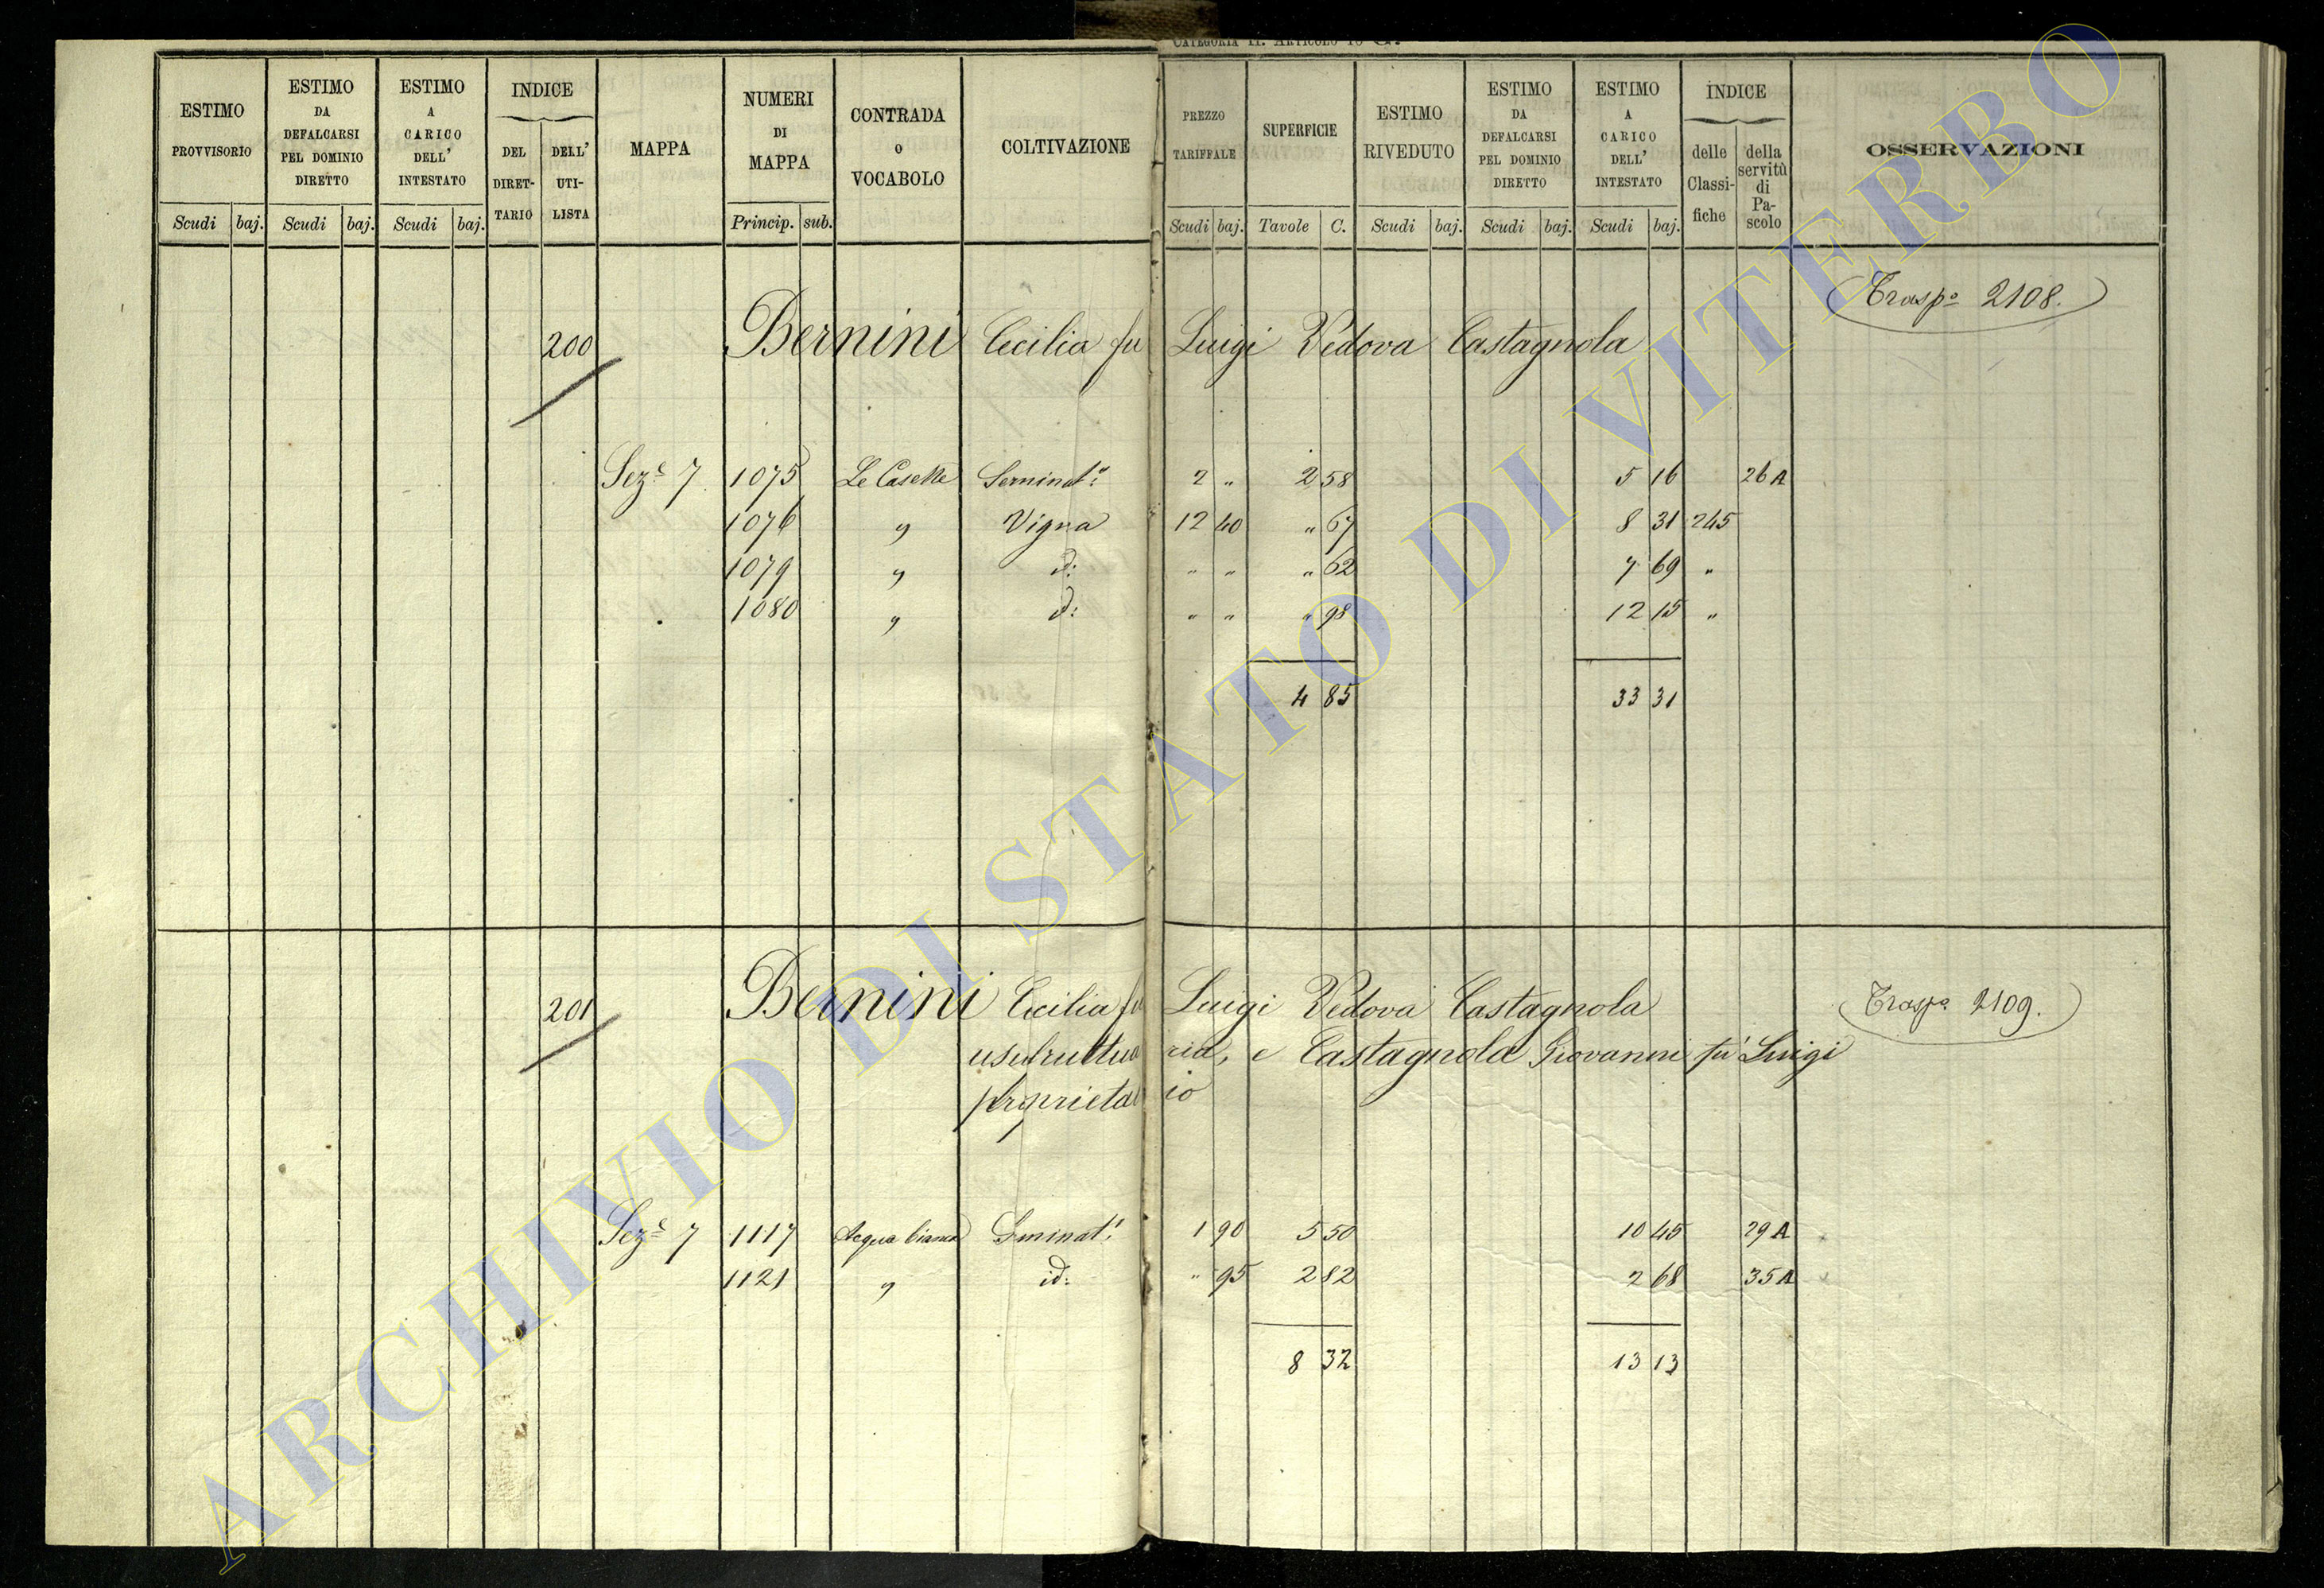 CATEGORIA II. ARTICOLO 16 G.
ESTIMO PROVVISORIO Scudi baj.
ESTIMO DA DEFALCARSI PEL DOMINIO DIRETTO Scudi baj.
ESTIMO A CARICO DELL' INTESTATO Scudi baj.
INDICE DEL DIRET- TARIO DELL' UTI- LISTA
MAPPA
NUMERI DI MAPPA Princip. sub.
CONTRADA O VOCABOLO
COLTIVAZIONE
PREZZO TARIFFALE Scudi baj.
SUPERFICIE Tavole C.
ESTIMO RIVEDUTO Scudi baj.
ESTIMO DA DEFALCARSI PEL DOMINIO DIRETTO Scudi baj.
ESTIMO A CARICO DELL' INTESTATO Scudi baj.
INDICE delle Classi- fiche della servitù di Pa- scolo
OSSERVAZIONI
Trasp.o 2108.
200 Bernini Cecilia fu Luigi Vedova Castagnola
Sez.e 7 1075 Le Caselle Seminat.o 2 " 2 58 5 16 26 A
1076 " Vigna 12 40 " 67 8 31 245
1079 " d: " " " 62 7 69 "
1080 " d: " " " 98 12 15 "
4 85 33 31
201 Bernini Cecilia fu Luigi Vedova Castagnola Trasp.o 2109.
usufruttuaria, e Castagnola Giovanni fu Luigi
proprietario
Sez.e 7 1117 Acqua bianca Sminat.o 1 90 5 50 10 45 29 A
1121 " id: " 95 2 82 2 68 35 A
8 32 13 13
ARCHIVIO DI STATO DI VITERBO